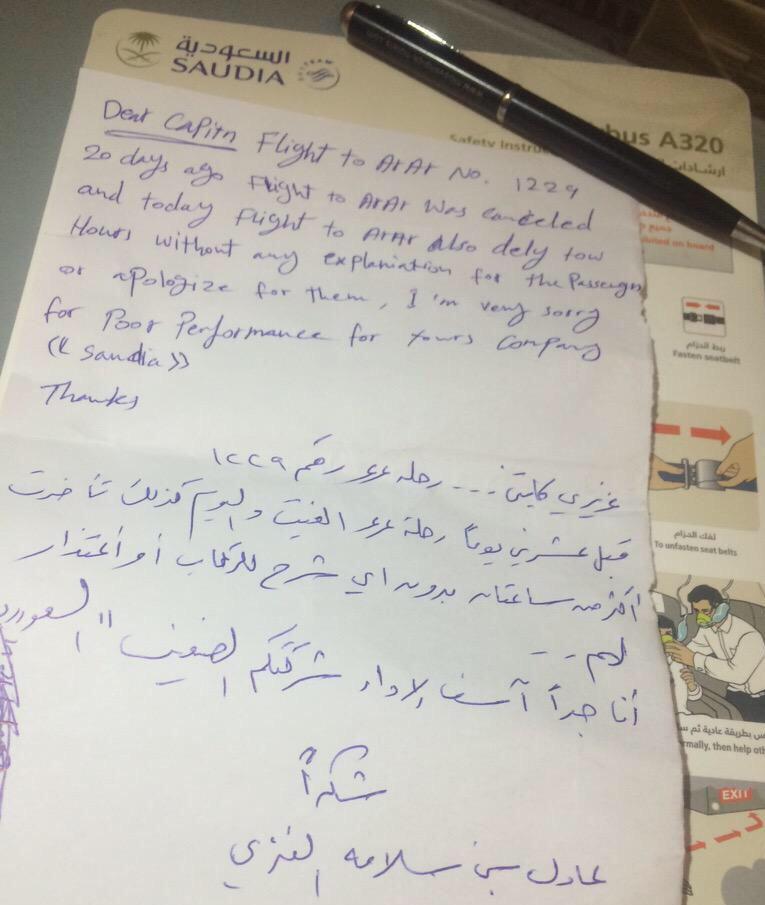 السعودية
SAUDIA
bus A320
Safety Instruc
ارشادات ال
Dear Capitn Flight to ArAr No. 1229
20 days ago Flight to ArAr was canceled
and today Flight to ArAr also dely tow
Hours without any explaniation for the Passengr
or apologize for them, I'm very sorry
for Poor Performance for yours Company
(( Saudia ))
Thanks
عزيزي كابتن ... رحله عرعر رقم ١٢٢٩
قبل عشرين يوماً رحلة عرعر الغيت واليوم كذلك تأخرت
أكثر من ساعتان بدون اي شرح للركاب أو أعتذار
لهم ..
أنا جداً آسف لاداء شركتكم الضعيف "السعودية
شكراً
عادل بن سلامه العنزي
ربط الحزام
Fasten seatbelt
لفك الحزام
To unfasten seat belts
س بطريقة عادية ثم سا
rmally, then help oth
EXIT